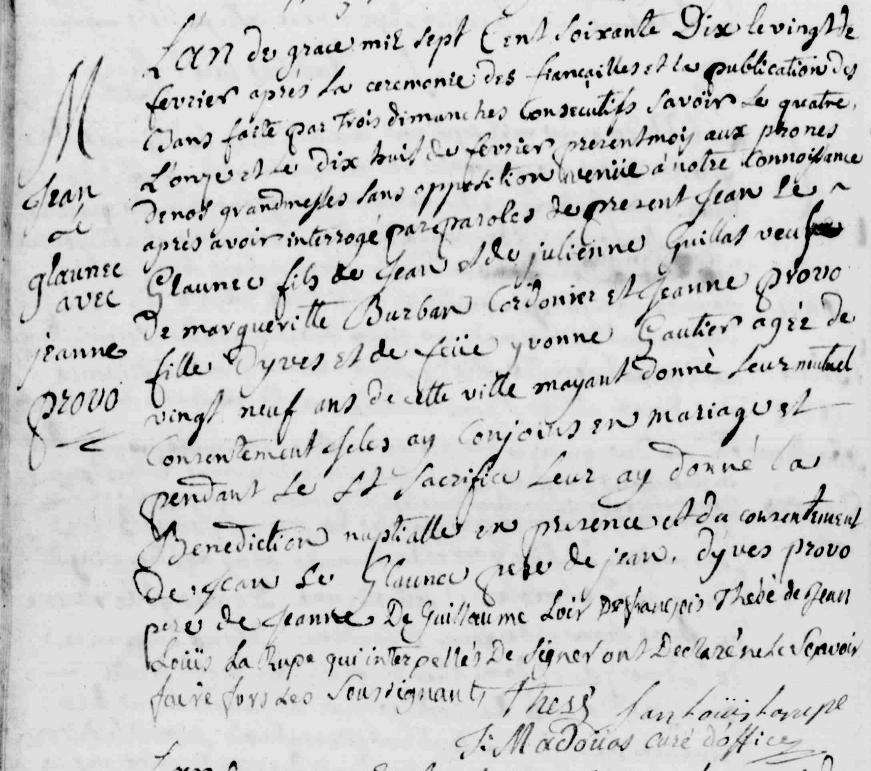 M
Jean
Le
glaunec
avec
jeanne
provo
L'an de grace mil sept Cent soixante Dix le vingt de
fevrier aprés la ceremonie des fiançailles et la publication des
bans faite par trois dimanches Consecutifs savoir Le quatre,
L'onze et Le dix huit de fevrier present mois aux prones
de nos grandmesses sans opposition venüe á notre Connoissance
aprés avoir interrogé par paroles de present Jean Le
Glaunec fils de Jean et de julienne Guillas veuf
de margueritte Burban Cordonier et Jeanne provo
fille d'yves et de feüe yvonne Gautier agée de
vingt neuf ans de cette ville mayant donné Leur mutuel
Consentement je les ay Conjoins en mariage et
pendant Le St Sacrifice Leur ay donné la
Benediction nuptialle en presence et du consentement
de Jean Le Glaunec pere de jean, d'yves provo
pere de Jeanne De Guillaume Loir De françois Thebé de Jean
Loüis La Rupe qui interpellés De signer ont Declaré ne Le Scavoir
faire fors Les Soussignants
Jan Loüis Larupe
Madoüas curé d'office